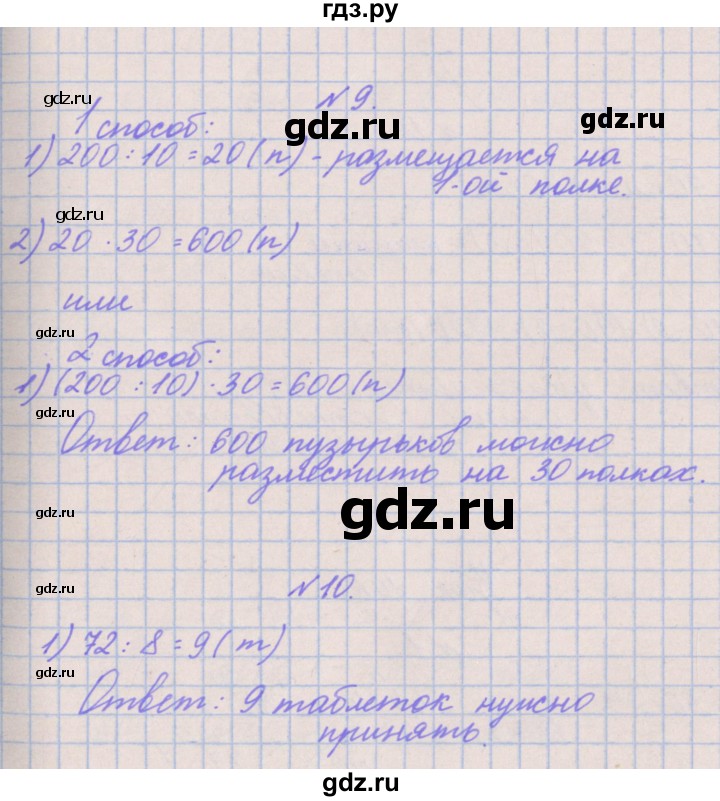 гдз.ру
gdz.ru
№ 9.
gdz.ru
gdz.ru
1 способ:
1) 200 : 10 = 20 (п) - размещается на
1-ой полке.
gdz.ru
2) 20 · 30 = 600 (п)
gdz.ru
или
gdz.ru
2 способ:
gdz.ru
1) (200 : 10) · 30 = 600 (п)
gdz.ru
Ответ: 600 пузырьков можно
разместить на 30 полках.
gdz.ru
gdz.ru
gdz.ru
№ 10.
1) 72 : 8 = 9 (т)
gdz.ru
gdz.ru
Ответ: 9 таблеток нужно
принять.
gdz.ru